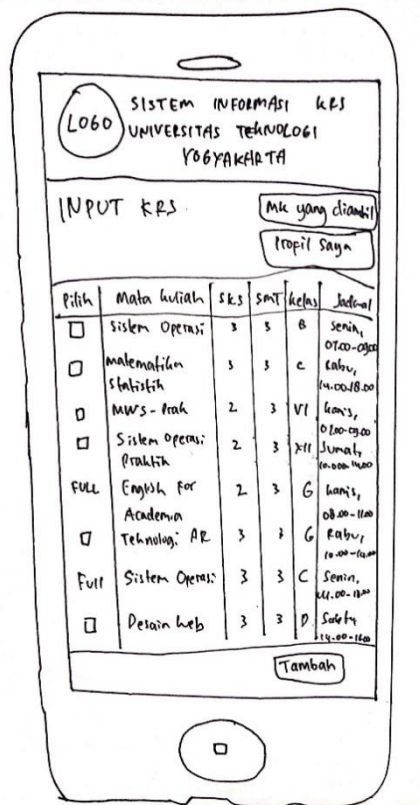 LOGO
SISTEM INFORMASI KRS
UNIVERSITAS TEKNOLOGI
YOGYAKARTA
INPUT KRS
Mk yang diambil
Profil Saya
Pilih Mata kuliah SKS SMT kelas Jadwal
Sistem Operasi 3 3 B Senin,
07.00-09.00
Matematika 3 3 C Rabu,
Statistik 14.00-18.00
MWS - Prak 2 3 VI kamis,
07.00-09.00
Sistem Operasi 2 3 XII Jumat,
Praktik 10.00-14.00
FULL English For 2 3 G kamis,
Academia 08.00-11.00
Teknologi AR 3 3 G Rabu,
10.00-14.00
Full Sistem Operasi 3 3 C Senin,
Desain Web 3 3 D Sabtu
14.00-16.00
Tambah